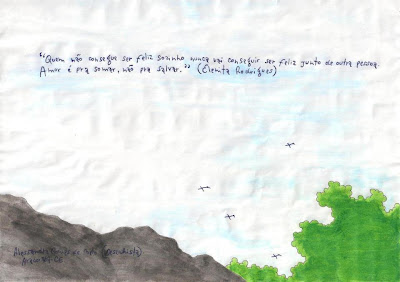 "Quem não consegue ser feliz sozinho nunca vai conseguir ser feliz junto de outra pessoa.
Amor é pra somar, não pra salvar." (Clemita Rodrigues)
(desenhista)